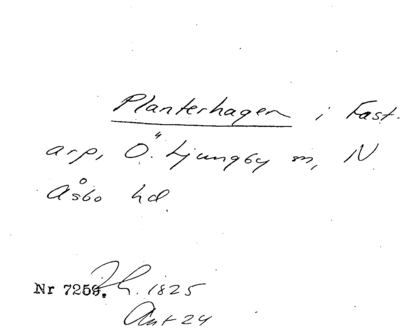 Planterhagen i Fast-
arp, Ö. Ljungby sn, N
Åsbo hd.
Nr 7259. 1825
Akt 24